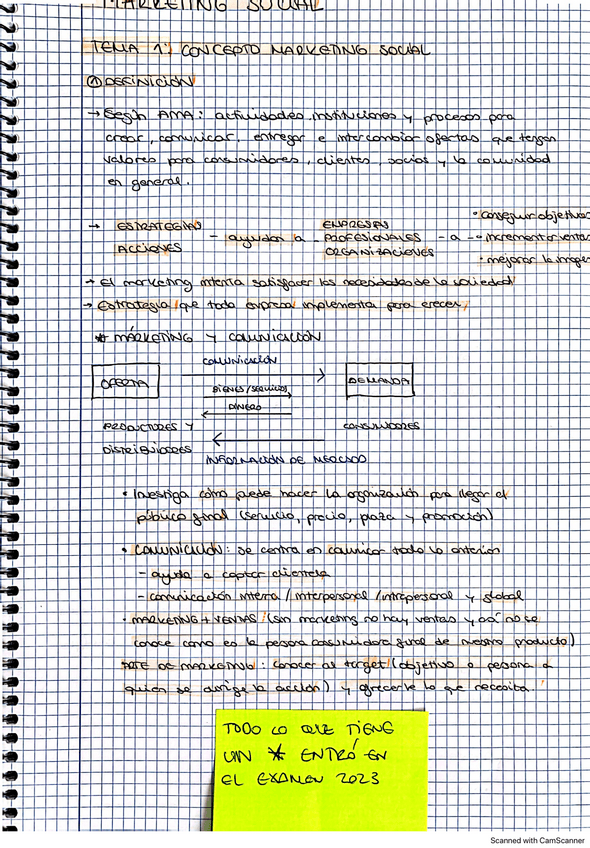 MARKETING SOCIAL
TEMA 1: CONCEPTO MARKETING SOCIAL
① DEFINICIÓN
→ Según AMA: actividades, instituciones y procesos para
crear, comunicar, entregar e intercambiar ofertas que tengan
valores para consumidores, clientes, socios y la comunidad
en general.
• conseguir objetivos
→ ESTRATEGIAS EMPRESAS
- ayudan a - PROFESIONALES - a - • incrementar ventas
ACCIONES ORGANIZACIONES
• mejorar la imagen
→ El marketing intenta satisfacer las necesidades de la sociedad
→ Estrategia que toda empresa implementa para crecer
* MARKETING Y COMUNICACIÓN
COMUNICACIÓN
OFERTA BIENES/SERVICIOS DEMANDA
DINERO
PRODUCTORES Y CONSUMIDORES
DISTRIBUIDORES
INFORMACIÓN DE MERCADO
• Investiga cómo puede hacer la organización para llegar al
público final (servicio, precio, plaza y promoción)
• COMUNICACIÓN: se centra en comunicar todo lo anterior
- ayuda a captar clientela
- comunicación interna / interpersonal / intrapersonal y global
• MARKETING + VENTAS (sin marketing no hay ventas y así no se
conoce como es la persona consumidora final de nuestro producto)
ARTE DE MARKETING: conocer al target (objetivo o persona a
quien se dirige la acción) y ofrecerle lo que necesita.
TODO LO QUE TIENE
UN * ENTRÓ EN
EL EXAMEN 2023
Scanned with CamScanner